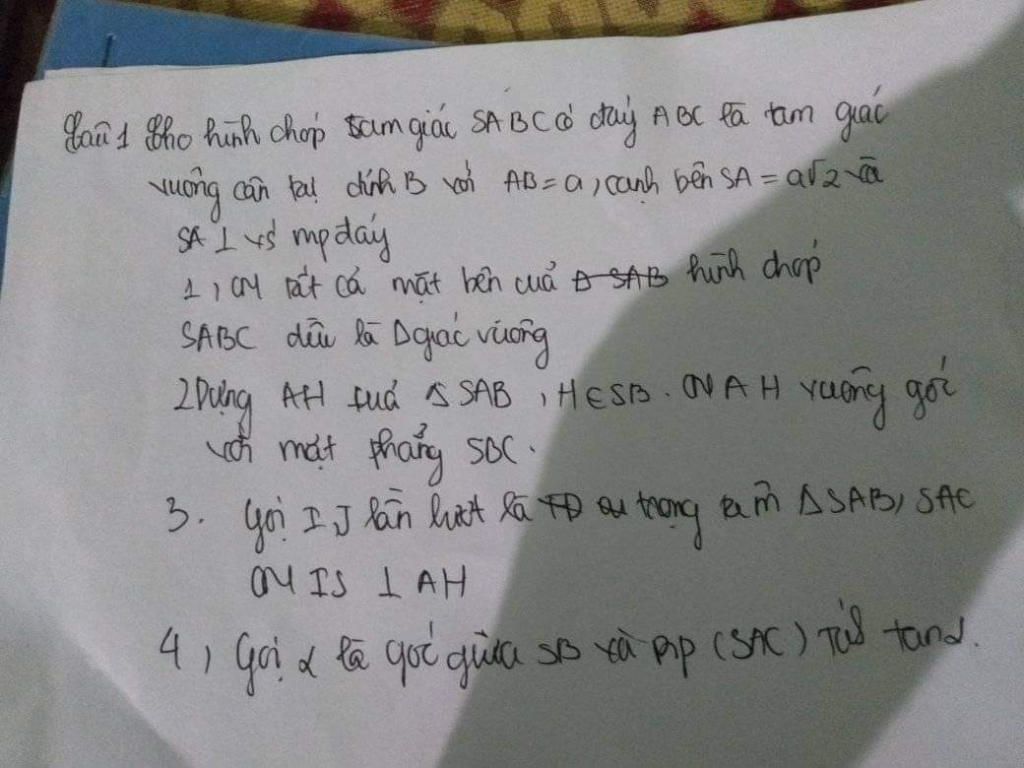 Câu 1 Cho hình chóp tam giác SABC có đáy ABC là tam giác
vuông cân tại đỉnh B với AB = a, cạnh bên SA = a√2 và
SA ⊥ với mp đáy
1, CM tất cả mặt bên của Δ SAB hình chóp
SABC đều là Δ giác vuông
2 Dựng AH của Δ SAB, H ∈ SB. CM AH vuông góc
với mặt phẳng SBC.
3. Gọi I, J lần lượt là trọng tâm Δ SAB, SAC
CM IJ ⊥ AH
4, Gọi α là góc giữa SB và mp (SAC) Tính tanα.